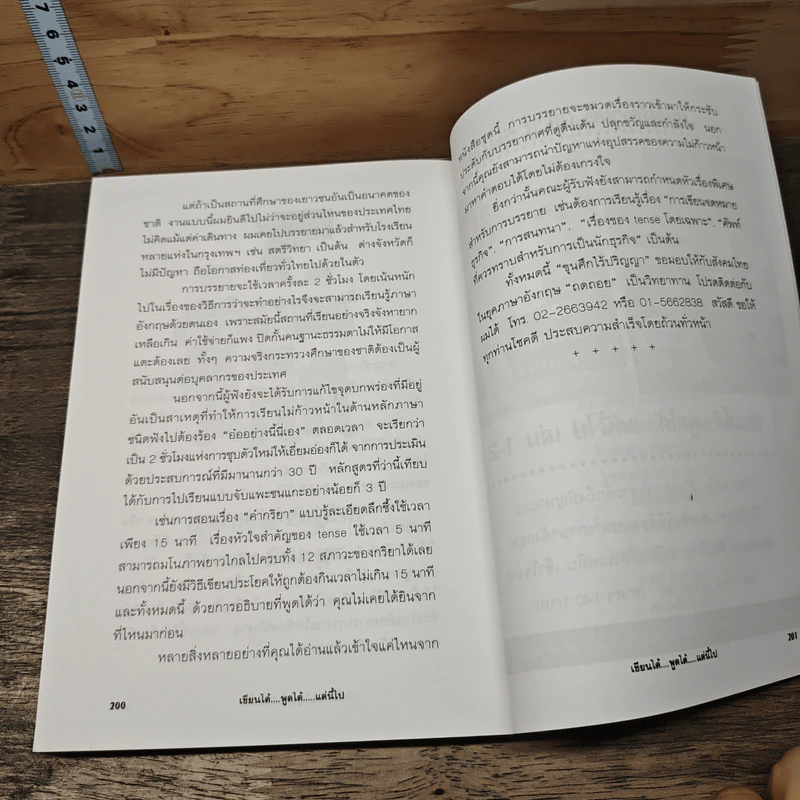 แต่ถ้าเป็นสถานที่ศึกษาของเยาวชนอันเป็นอนาคตของ
ชาติ งานแบบนี้ผมยินดีไปไม่ว่าจะอยู่ส่วนไหนของประเทศไทย
ไม่คิดแม้แต่ค่าเดินทาง ผมเคยไปบรรยายมาแล้วสำหรับโรงเรียน
หลายแห่งในกรุงเทพฯ เช่น สตรีวิทยา เป็นต้น ต่างจังหวัดก็
ไม่มีปัญหา ถือโอกาสท่องเที่ยวทั่วไทยไปด้วยในตัว
การบรรยายจะใช้เวลาครั้งละ 2 ชั่วโมง โดยเน้นหนัก
ไปในเรื่องของวิธีการว่าจะทำอย่างไรจึงจะสามารถเรียนรู้ภาษา
อังกฤษด้วยตนเอง เพราะสมัยนี้สถานที่เรียนอย่างจริงจังหายาก
เหลือเกิน ค่าใช้จ่ายก็แพง ปิดกั้นคนฐานะธรรมดาไม่ให้มีโอกาส
แตะต้องเลย ทั้งๆ ความจริงกระทรวงศึกษาของชาติต้องเป็นผู้
สนับสนุนต่อบุคลากรของประเทศ
นอกจากนี้ผู้ฟังยังจะได้รับการแก้ไขจุดบกพร่องที่มีอยู่
อันเป็นสาเหตุที่ทำให้การเรียนไม่ก้าวหน้าในด้านหลักภาษา
ชนิดฟังไปต้องร้อง "อ๋ออย่างนี้นี่เอง" ตลอดเวลา จะเรียกว่า
เป็น 2 ชั่วโมงแห่งการชุบตัวใหม่ให้เอี่ยมอ่องก็ได้ จากการประเมิน
ด้วยประสบการณ์ที่มีมานานกว่า 30 ปี หลักสูตรที่ว่านี้เทียบ
ได้กับการไปเรียนแบบจับแพะชนแกะอย่างน้อยก็ 3 ปี
เช่นการสอนเรื่อง "คำกริยา" แบบรู้ละเอียดลึกซึ้งใช้เวลา
เพียง 15 นาที เรื่องหัวใจสำคัญของ tense ใช้เวลา 5 นาที
สามารถมโนภาพยาวไกลไปครบทั้ง 12 สภาวะของกริยาได้เลย
นอกจากนี้ยังมีวิธีเขียนประโยคให้ถูกต้องกินเวลาไม่เกิน 15 นาที
และทั้งหมดนี้ ด้วยการอธิบายที่พูดได้ว่า คุณไม่เคยได้ยินจาก
ที่ไหนมาก่อน
หลายสิ่งหลายอย่างที่คุณได้อ่านแล้วเข้าใจแค่ไหนจาก
200 เขียนได้....พูดได้.....แต่นี้ไป
หนังสือชุดนี้ การบรรยายจะขมวดเรื่องราวเข้ามาให้กระชับ
ประดับกับบรรยากาศที่ดูตื่นเต้น ปลุกขวัญและกำลังใจ นอก
จากนี้คุณยังสามารถนำปัญหาแห่งอุปสรรคของความไม่ก้าวหน้า
มาหาคำตอบได้โดยไม่ต้องเกรงใจ
ยิ่งกว่านั้นคณะผู้รับฟังยังสามารถกำหนดหัวเรื่องพิเศษ
สำหรับการบรรยาย เช่นต้องการเรียนรู้เรื่อง "การเขียนจดหมาย
ธุรกิจ", "การสนทนา", "เรื่องของ tense โดยเฉพาะ", "ศัพท์
ที่ควรทราบสำหรับการเป็นนักธุรกิจ" เป็นต้น
ทั้งหมดนี้ "ขุนศึกไร้ปริญญา" ขอมอบให้กับสังคมไทย
ในยุคภาษาอังกฤษ "ถดถอย" เป็นวิทยาทาน โปรดติดต่อกับ
ผมได้ โทร. 02-2663942 หรือ 01-5662838 สวัสดี ขอให้
ทุกท่านโชคดี ประสบความสำเร็จโดยถ้วนทั่วหน้า
+ + + + +
เขียนได้....พูดได้.....แต่นี้ไป 201
7 6 5 4 3 2 1